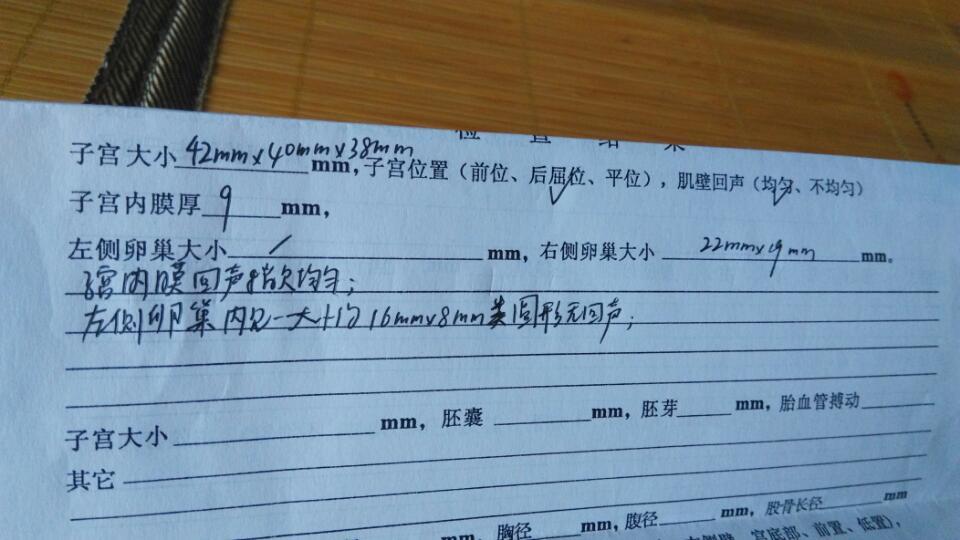 检查结果
子宫大小 42mm×40mm×38mm mm，子宫位置（前位、后屈位、平位），肌壁回声（均匀、不均匀）
子宫内膜厚 9 mm，
左侧卵巢大小 / mm，右侧卵巢大小 22mm×19mm mm。
子宫内膜回声稍欠均匀；
左侧卵巢内见一大小约16mm×8mm类圆形无回声；
子宫大小 mm，胚囊 mm，胚芽 mm，胎血管搏动
其它
mm，胸径 mm，腹径 mm，股骨长径 mm
侧壁、宫底部、前置、低置），